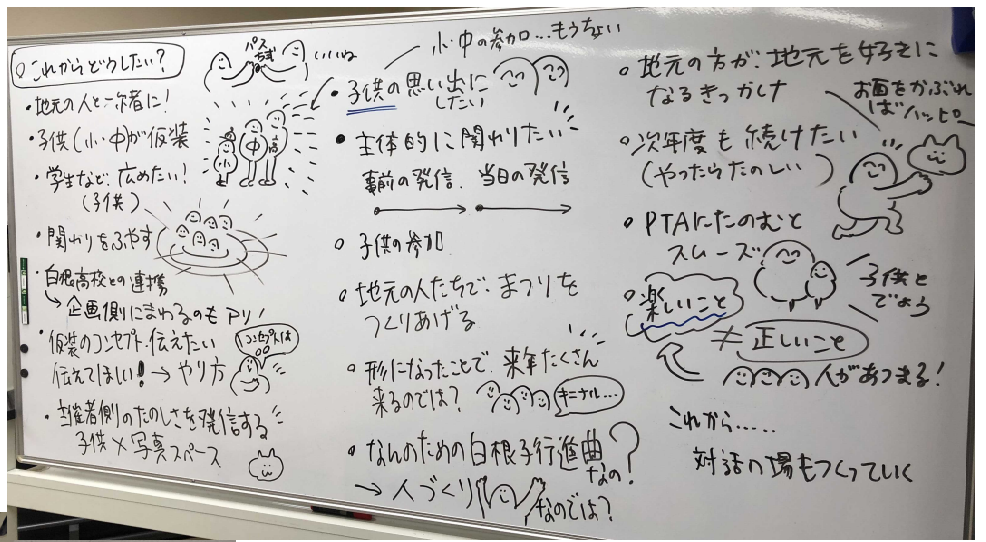 ○ これからどうしたい?
・地元の人と一緒に!
・子供(小・中)が仮装
・学生など、広めたい!
(子供)
・関わりをふやす
・白根高校との連携
→ 企画側にまわるのもアリ!
・仮装のコンセプト、伝えたい
伝えてほしい! → やり方
コンセプトは
○○
・主催者側のたのしさを発信する
子供×写真スペース
パス
ちぎる
いいね
小
中
高
小・中の参加…もうちない
・子供の思い出に
したい
・主体的に関わりたい
事前の発信、当日の発信
○ 子供の参加
○ 地元の人たちで、まつりを
つくりあげる
○ 形になったことで、来年たくさん
来るのでは?
キニナル…
○ なんのための白根子行進曲
なの?
→ 人づくり
なのでは?
○ 地元の方が、地元を好きに
なるきっかけ
お面をかぶれ
ばハッピー
○ 次年度も続けたい
(やったらたのしい)
○ PTAにたのむと
スムーズ
子供と
でよう
○ 楽しいこと
≠ 正しいこと
人があつまる!
これから.....
対話の場もつくっていく